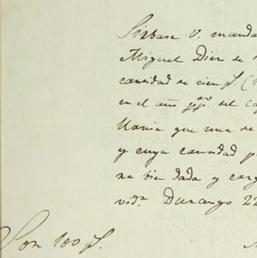 Sirvase V. manda
Miguel Dien de
cantidad de cien p.s (
en el año pp.do del
Maria que una de
y cuya cantidad p
na bien dada y carg
vid.a Durango 22
Son 100 p.s